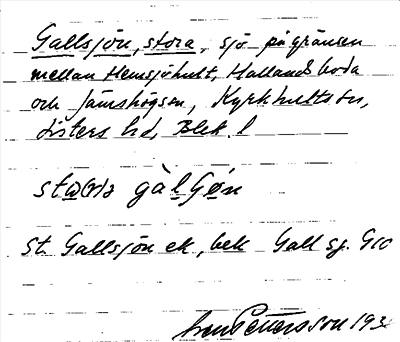 Gallsjön, stora, sjö på gränsen
mellan Hemsjöhult, Hallandsboda
och Jämshögsen, Kyrkhults sn,
Listers hd, Blek. l
stωra gàlʃøn
St. Gallsjön ek, bek Gall sj. GK
Sven Pettersson 193